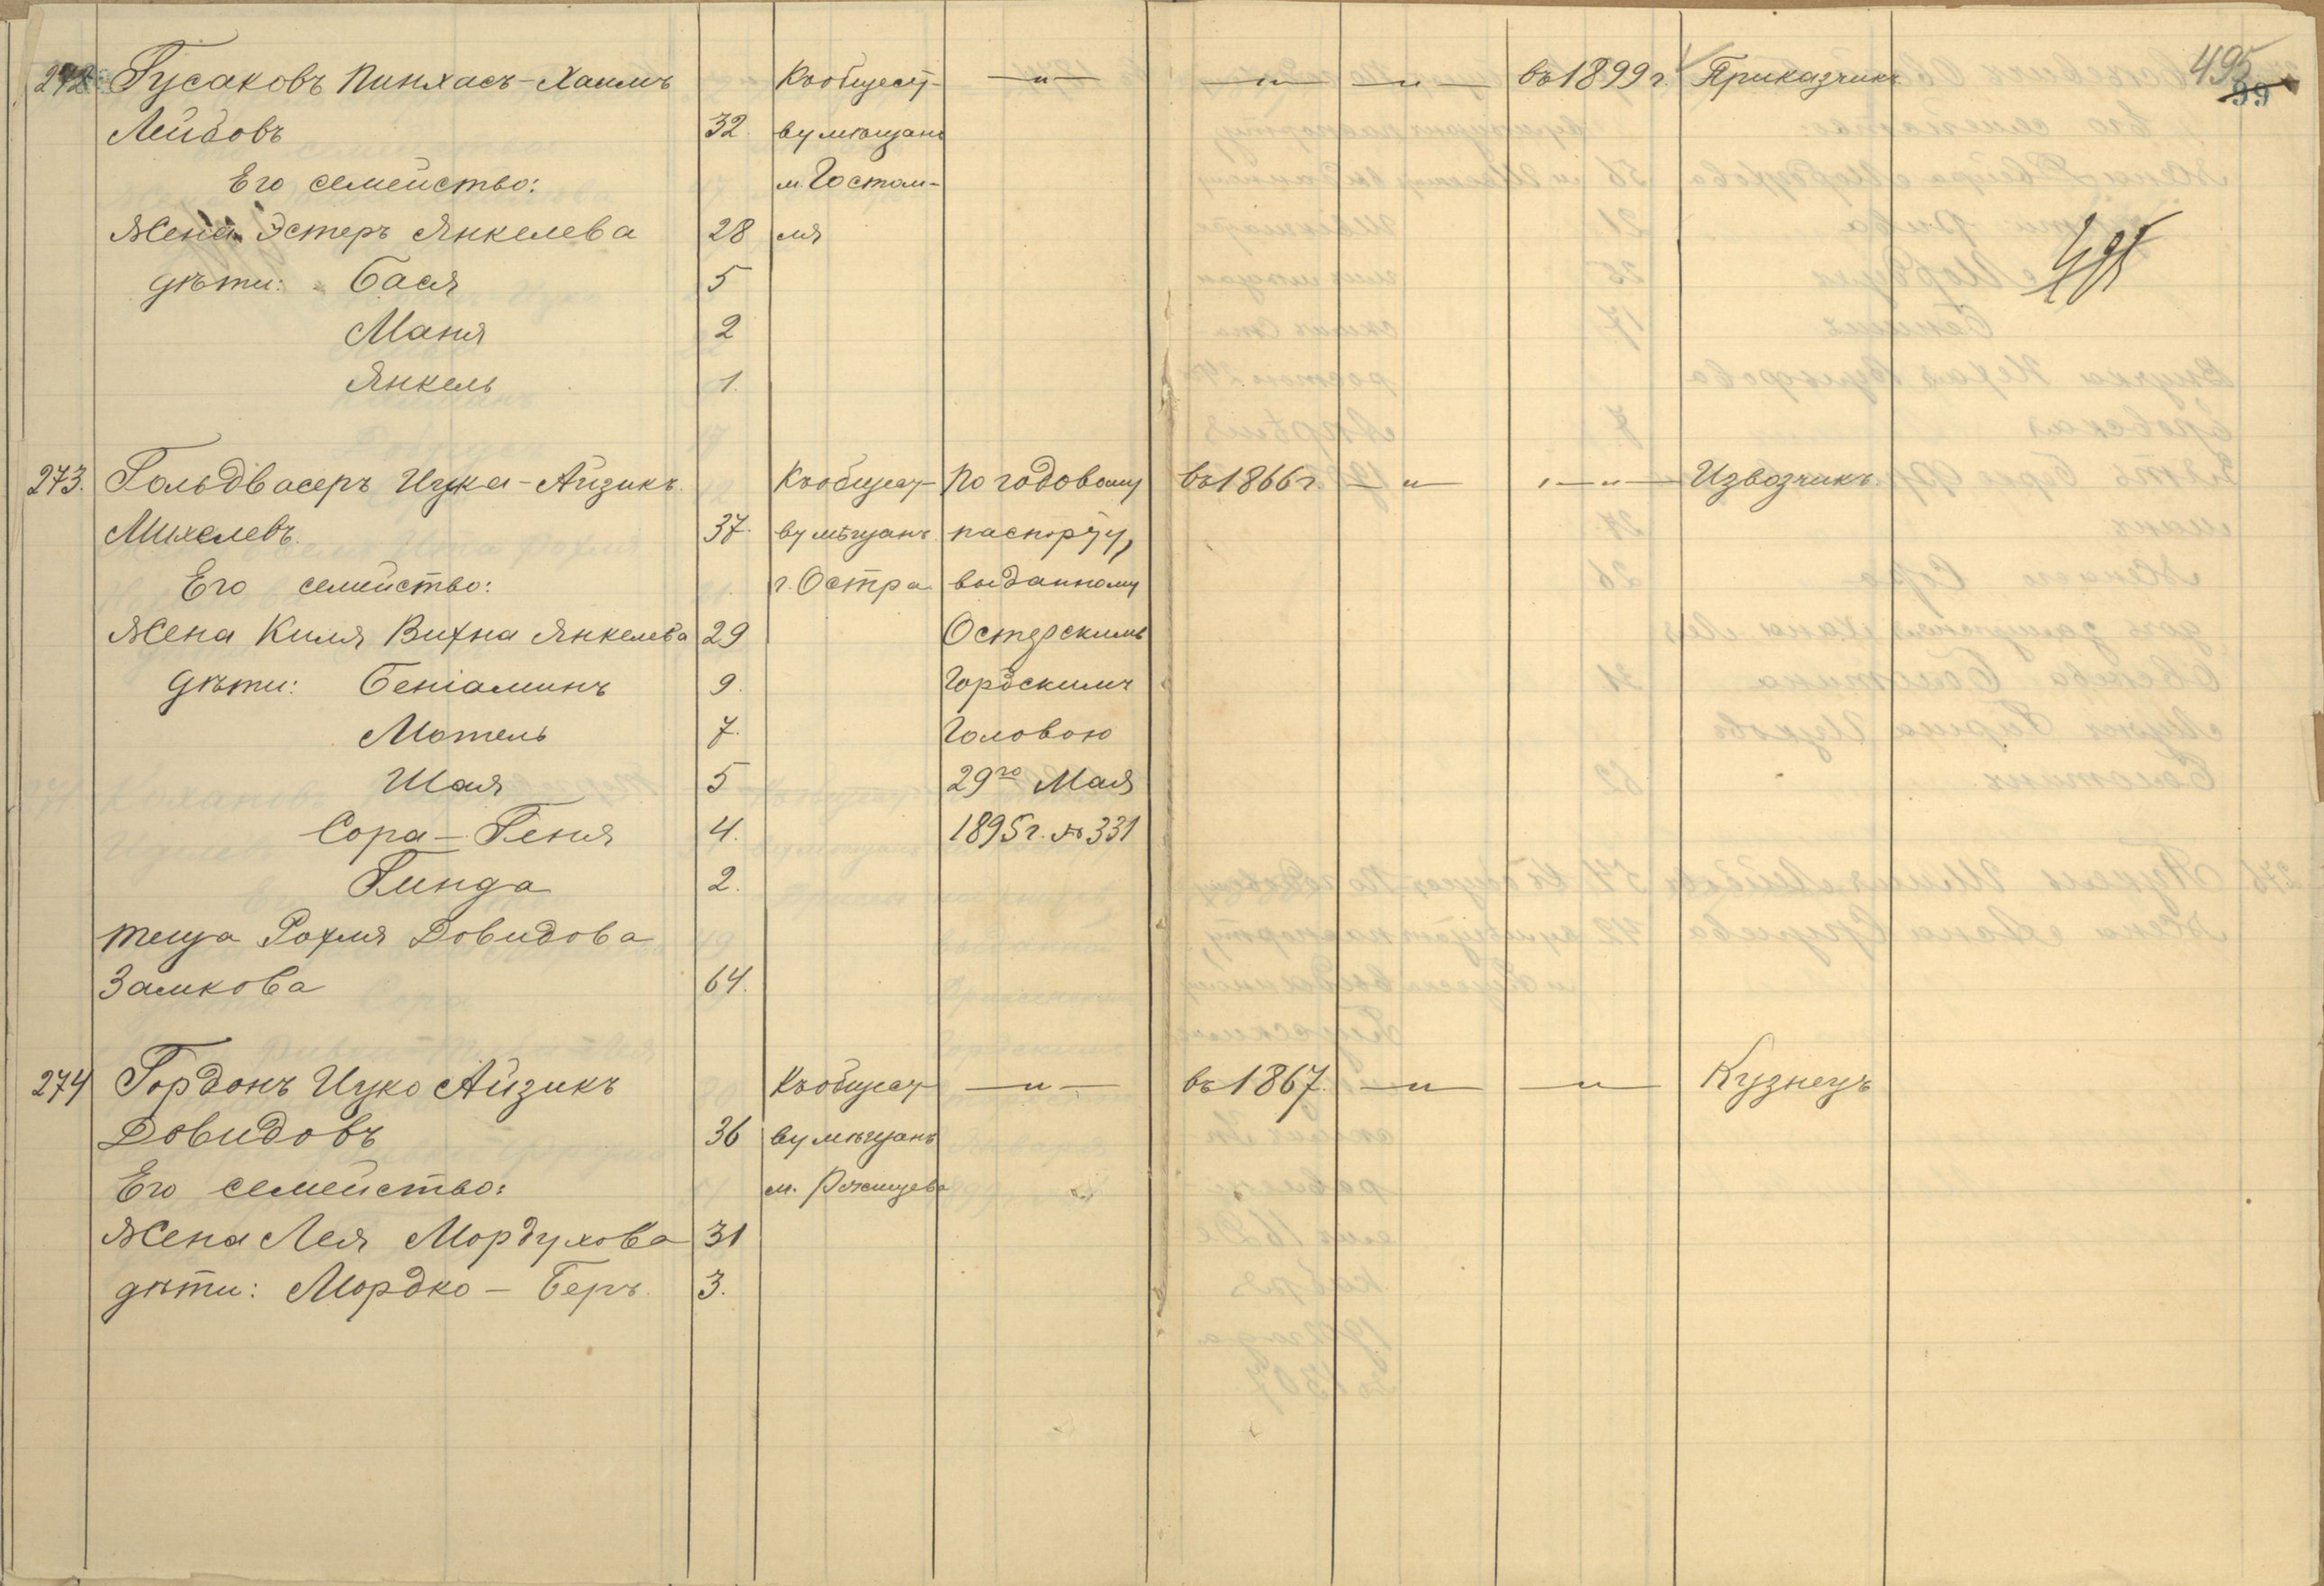 272. Гусаковъ Пинхасъ-Хаимъ Къ общест- —"— —"— —"— въ 1899 г. Приказчикъ 495
99
Лейбовъ 32. ву мѣщанъ
Его семейство: м. Гостом-
Жена Эстеръ Янкелева 28 ля
495
дѣти: Бася 5
Маня 2
Янкель 1.
273. Гольдвасеръ Ицка-Айзикъ Къ общест- По годовому въ 1866 г. —"— —"— Извозчикъ
Михелевъ. 37. ву мѣщанъ паспорту,
Его семейство: г. Остра выданному
Жена Киля Вихна Янкелева 29 Остерскимъ
дѣти: Беніаминъ 9. Гордскимъ
Мотель 7. Головою
Шая 5 29го Мая
Сора-Геня 4. 1895 г. № 331
Гинда 2.
теща Рохля Довидова
Замкова 64.
274 Гордонъ Ицко Айзикъ Къ общест- —"— въ 1867. —"— —"— Кузнецъ
Довидовъ 36 ву мѣщанъ
Его семейство: м.
Жена Лея Мордухова 31
дѣти: Мордко-Беръ. 3.